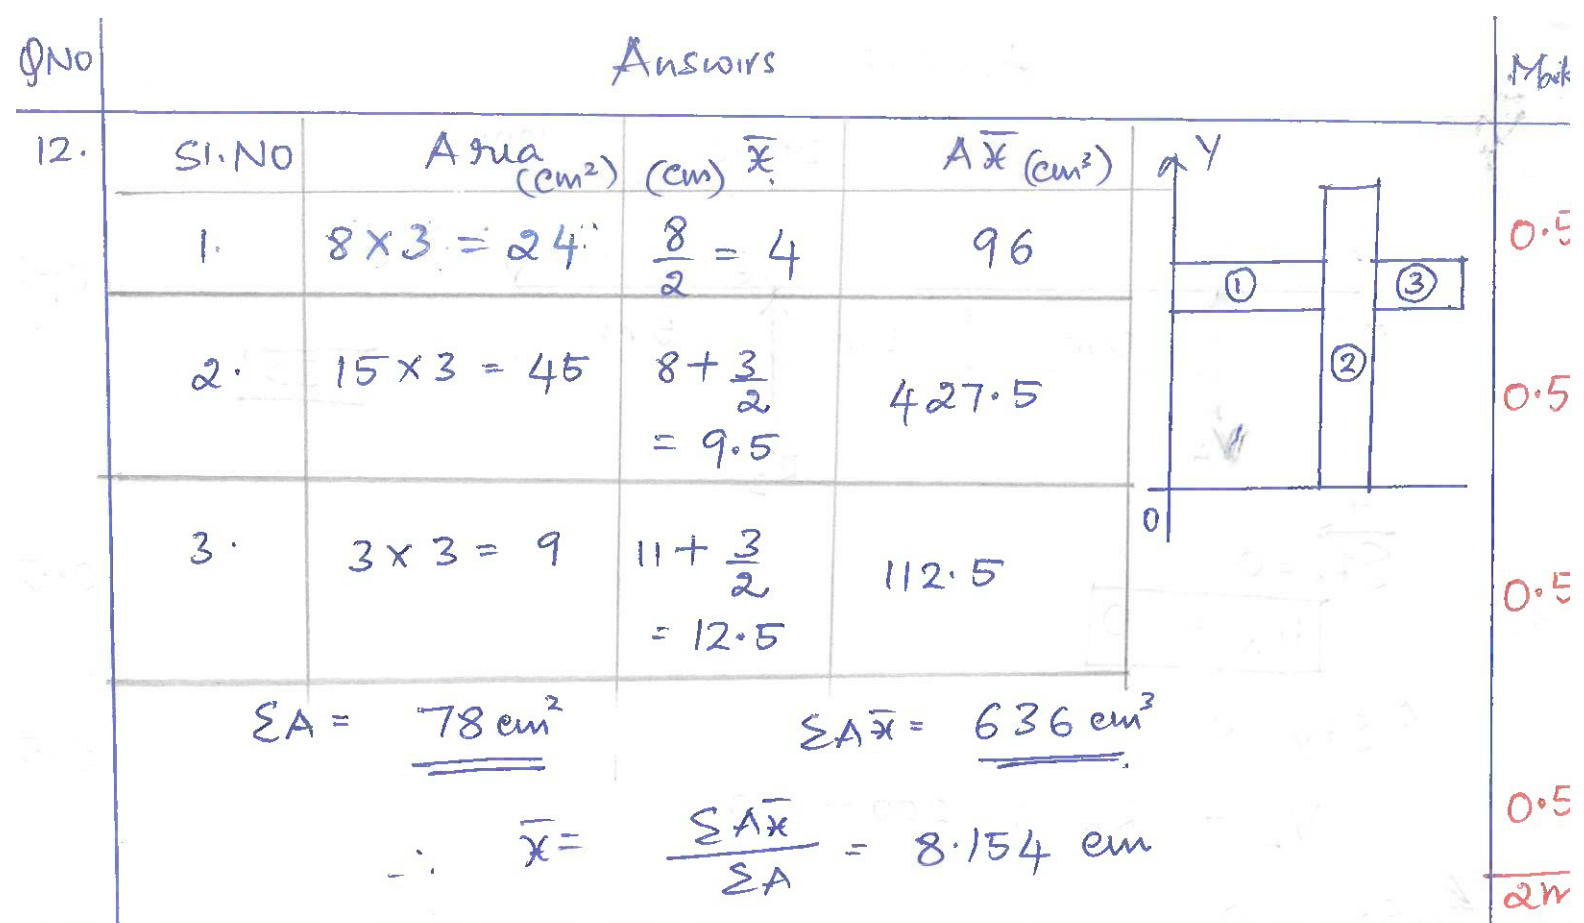 QNO Answirs Mark
12. Sl.NO Area (cm²) (cm) x̄ Ax̄ (cm³)
1. 8 × 3 = 24 8/2 = 4 96 0.5
2. 15 × 3 = 45 8 + 3/2 = 9.5 427.5 0.5
3. 3 × 3 = 9 11 + 3/2 = 12.5 112.5 0.5
Y
① ③
②
O
ΣA = 78 cm² ΣAx̄ = 636 cm³
∴ x̄ = ΣAx̄/ΣA = 8.154 cm 0.5
2m